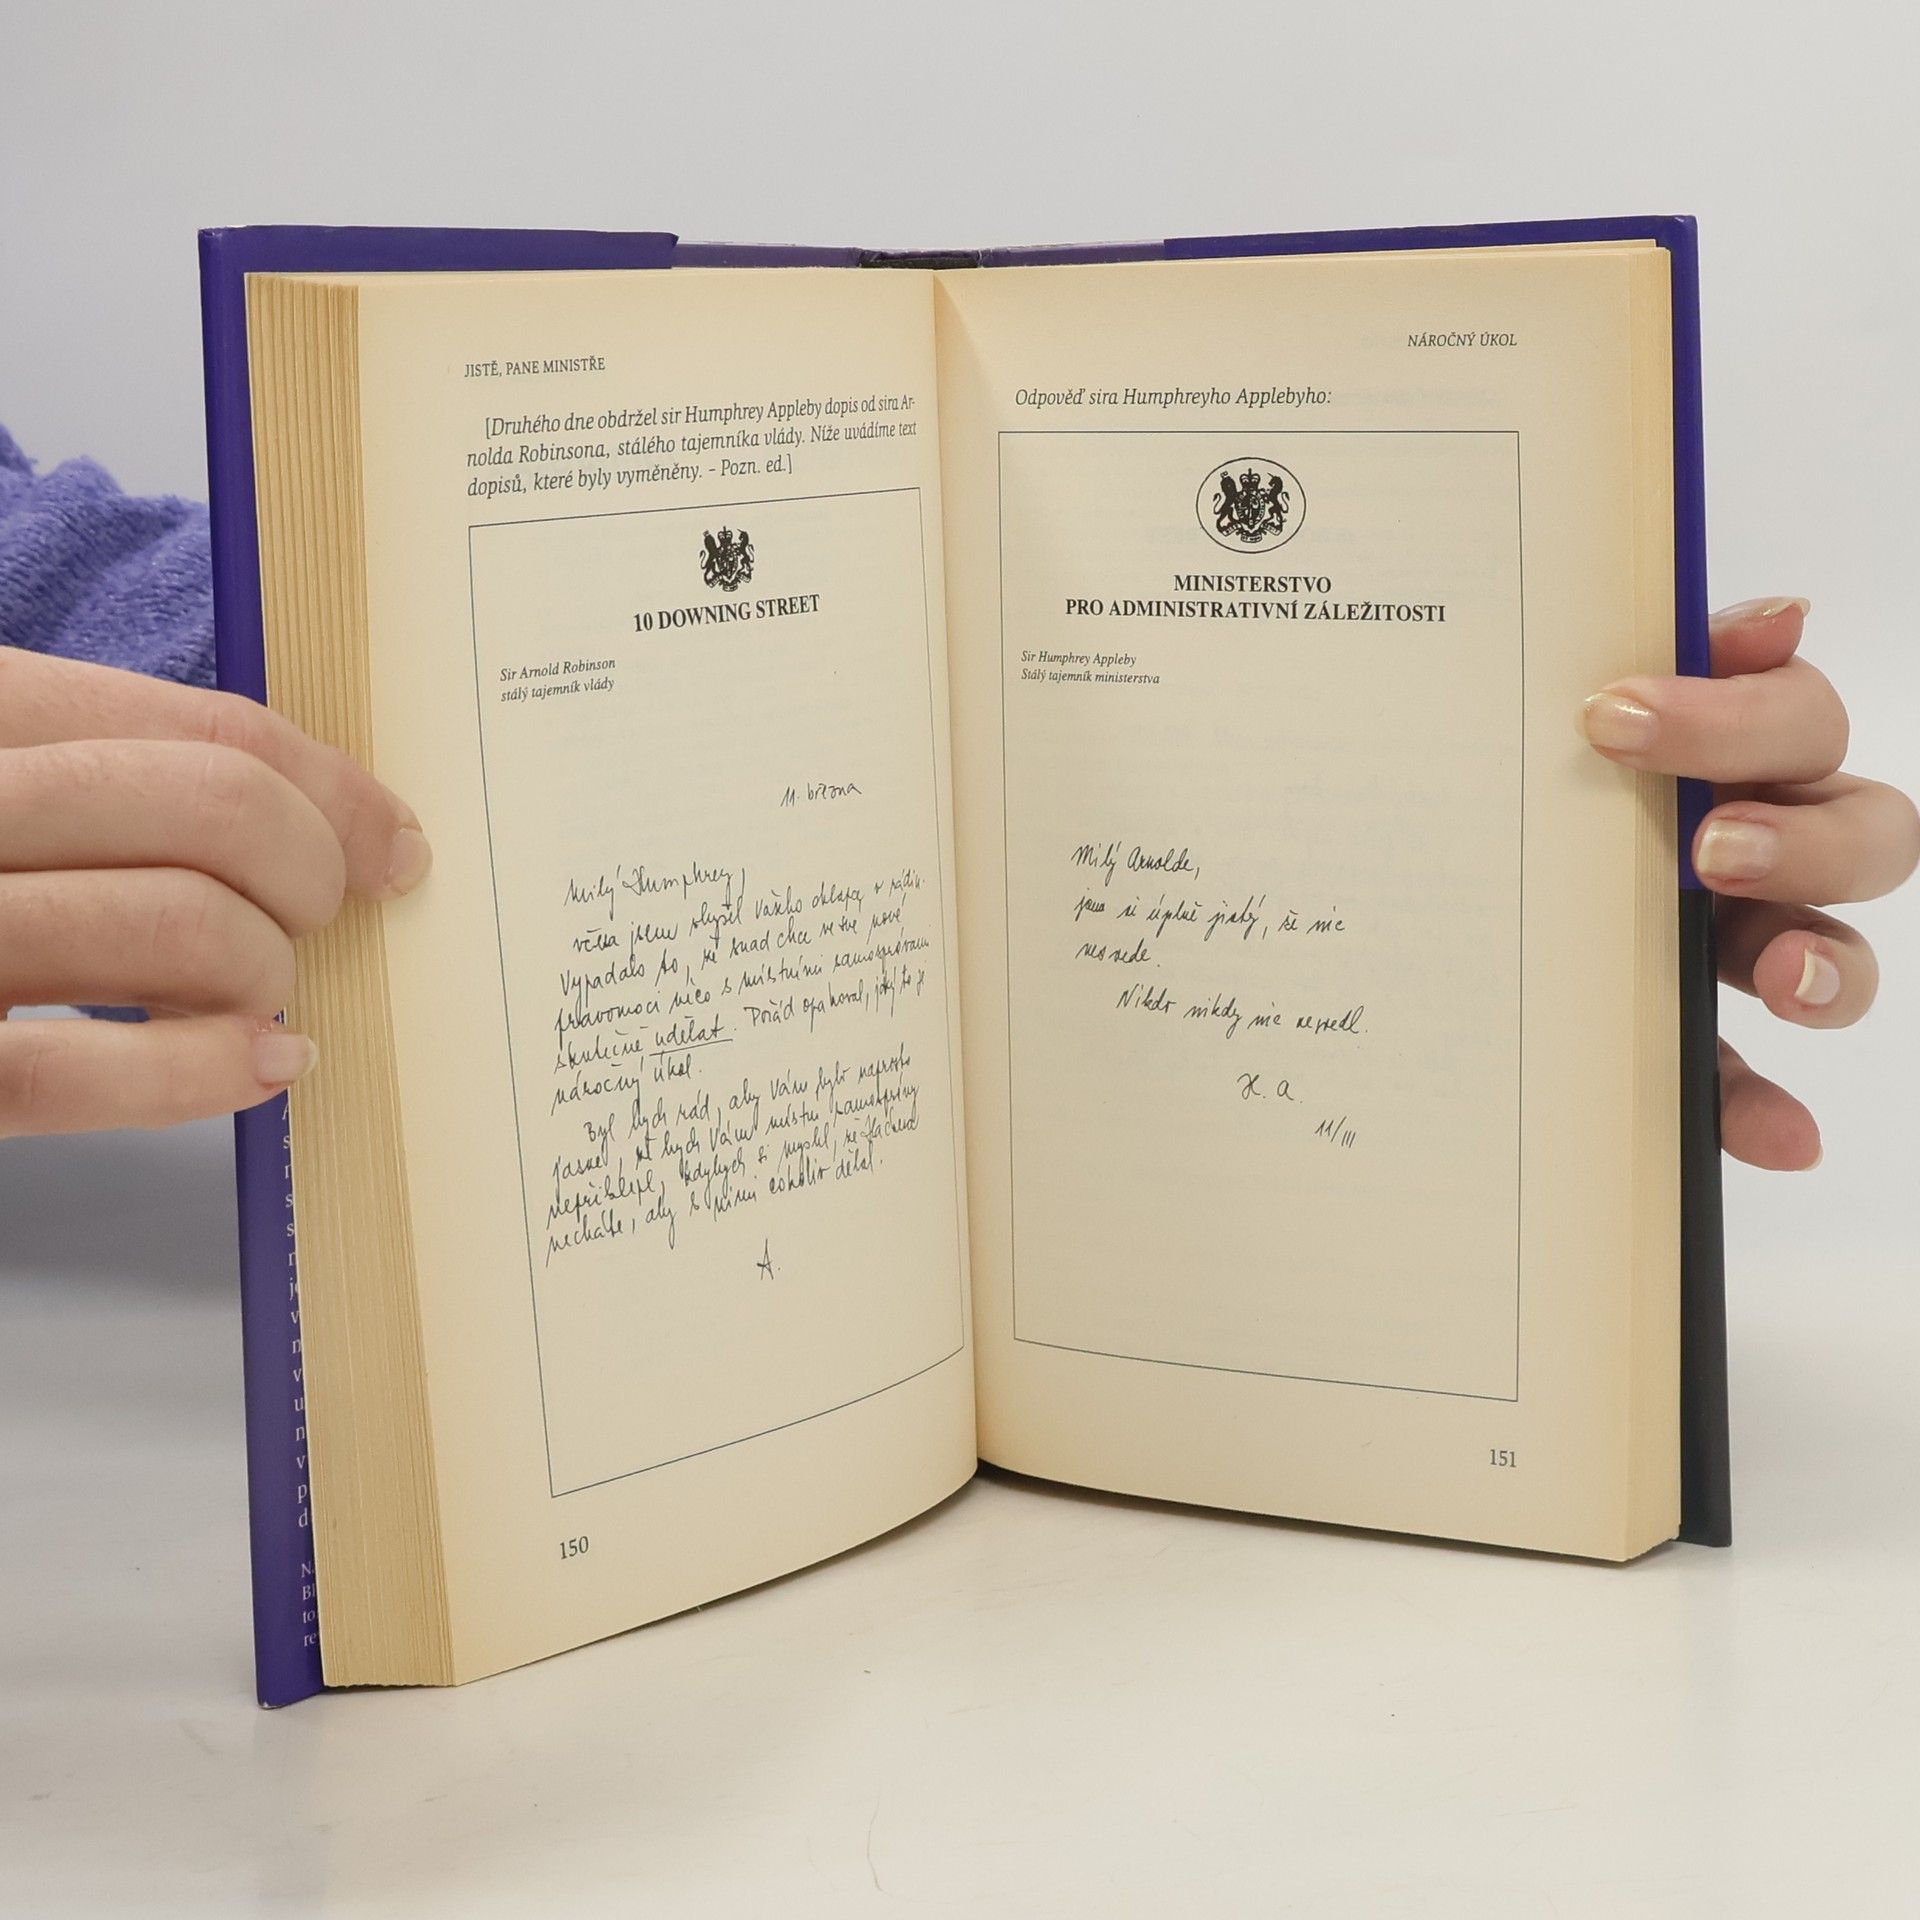 JISTĚ, PANE MINISTŘE
[Druhého dne obdržel sir Humphrey Appleby dopis od sira Ar-
nolda Robinsona, stálého tajemníka vlády. Níže uvádíme text
dopisů, které byly vyměněny. – Pozn. ed.]
10 DOWNING STREET
Sir Arnold Robinson
stálý tajemník vlády
11. března
Milý Humphrey,
včera jsem slyšel Vašeho chlapa v rádiu.
Vypadalo to, že snad chce ve své nové
pravomoci něco s místními samosprávami
skutečně udělat. Pořád opakoval, jaký to je
náročný úkol.
Byl bych rád, aby Vám bylo naprosto
jasné, že bych Vám místní samosprávy
nepřiklepl, kdybych si myslel, že Hackera
necháte, aby s nimi cokoliv dělal.
A.
150
NÁROČNÝ ÚKOL
Odpověď sira Humphreyho Applebyho:
MINISTERSTVO
PRO ADMINISTRATIVNÍ ZÁLEŽITOSTI
Sir Humphrey Appleby
Stálý tajemník ministerstva
Milý Arnolde,
jsem si úplně jistý, že nic
nesvede.
Nikdo nikdy nic nesvedl.
H. A.
11/III
151